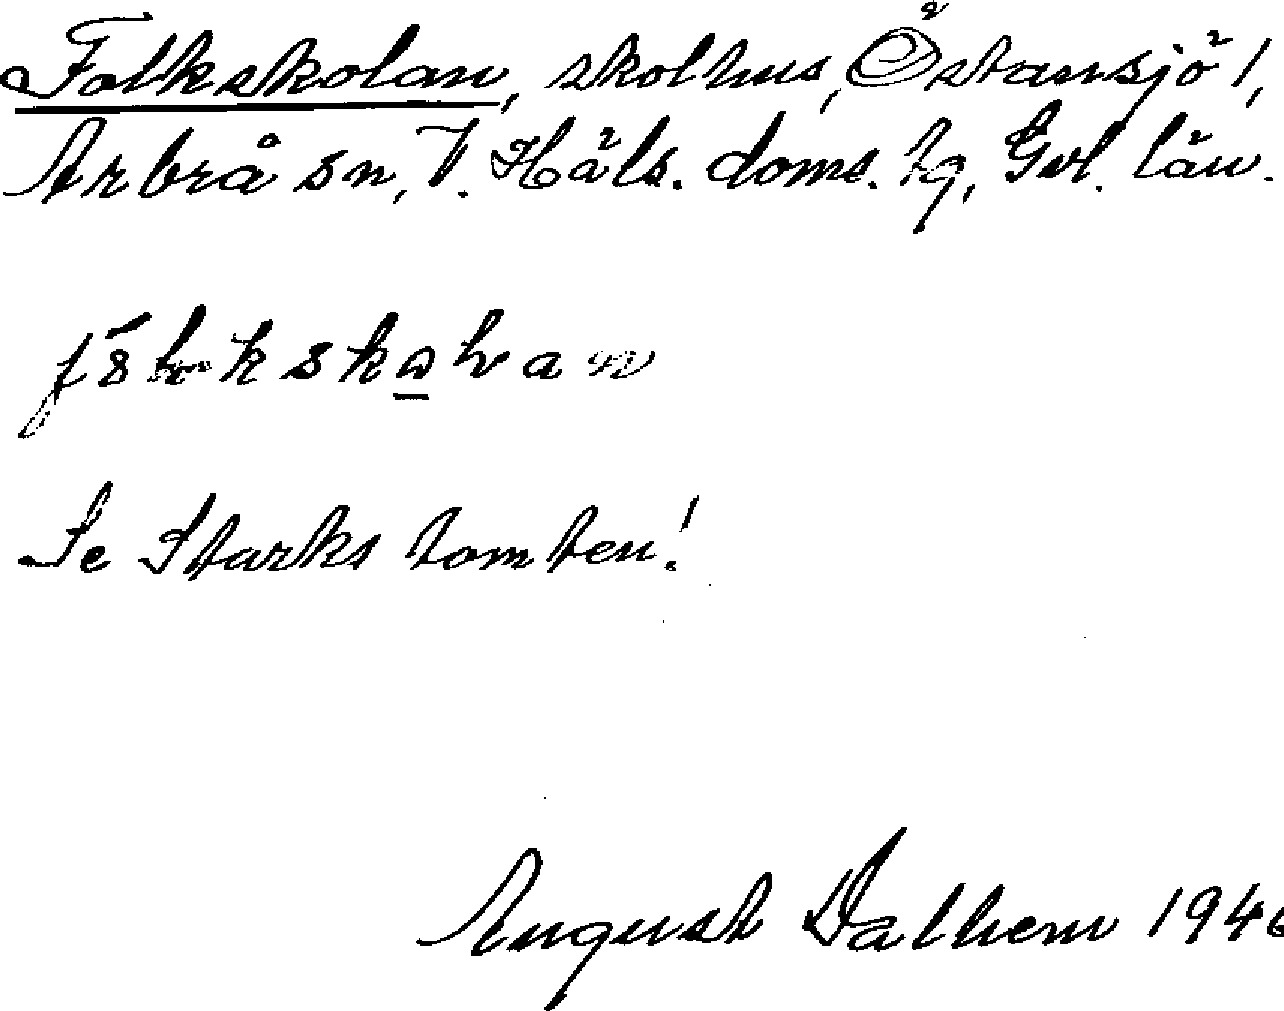 Folkskolan, skolhus, Östansjö 1,
Arbrå sn, V. Häls. doms. tg, Gvl. län.
Se Starks tomten!
August Dalhem 1946